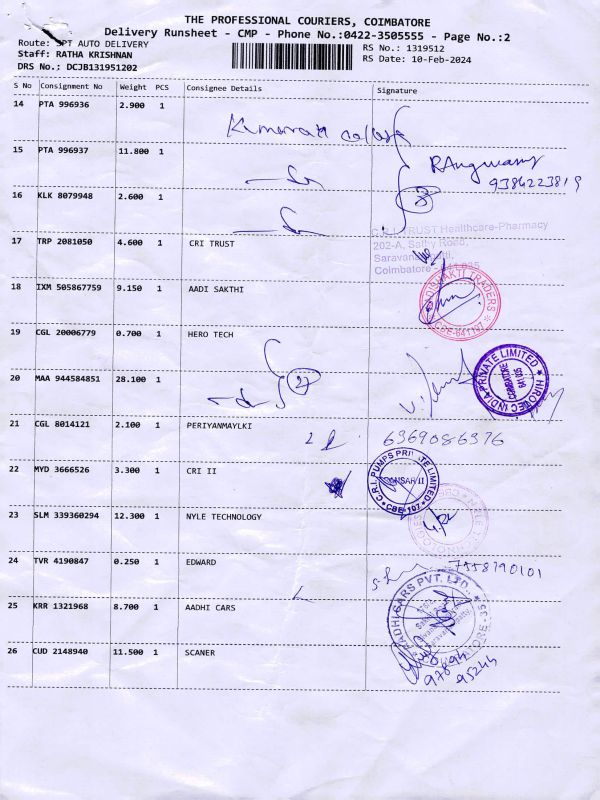 THE PROFESSIONAL COURIERS, COIMBATORE
Delivery Runsheet - CMP - Phone No.:0422-3505555 - Page No.:2
Route: SPT AUTO DELIVERY
Staff: RATHA KRISHNAN
DRS No.: DCJB131951202
RS No.: 1319512
RS Date: 10-Feb-2024
S No Consignment No Weight PCS Consignee Details Signature
14 PTA 996936 2.900 1
15 PTA 996937 11.800 1
9386223819
16 KLK 8079948 2.600 1 3
C.R.I. TRUST Healthcare-Pharmacy
202-A, Sathy Road,
Coimbatore - 641 035
17 TRP 2081050 4.600 1 CRI TRUST
18 IXM 505867759 9.150 1 AADI SAKTHI
ADISHAKTI TRADERS
CBE-641107
19 CGL 20006779 0.700 1 HERO TECH
HIROTEC INDIA PRIVATE LIMITED
COIMBATORE
641 105
20 MAA 944584851 28.100 1 27
21 CGL 8014121 2.100 1 PERIYANMAYLKI
6369086376
22 MYD 3666526 3.300 1 CRI II
C.R.I. PUMPS PRIVATE LIMITED
CBE-107
23 SLM 339360294 12.300 1 NYLE TECHNOLOGY
24 TVR 4190847 0.250 1 EDWARD
7558190101
25 KRR 1321968 8.700 1 AADHI CARS
AADHI CARS PVT. LTD.
26 CUD 2148940 11.500 1 SCANER